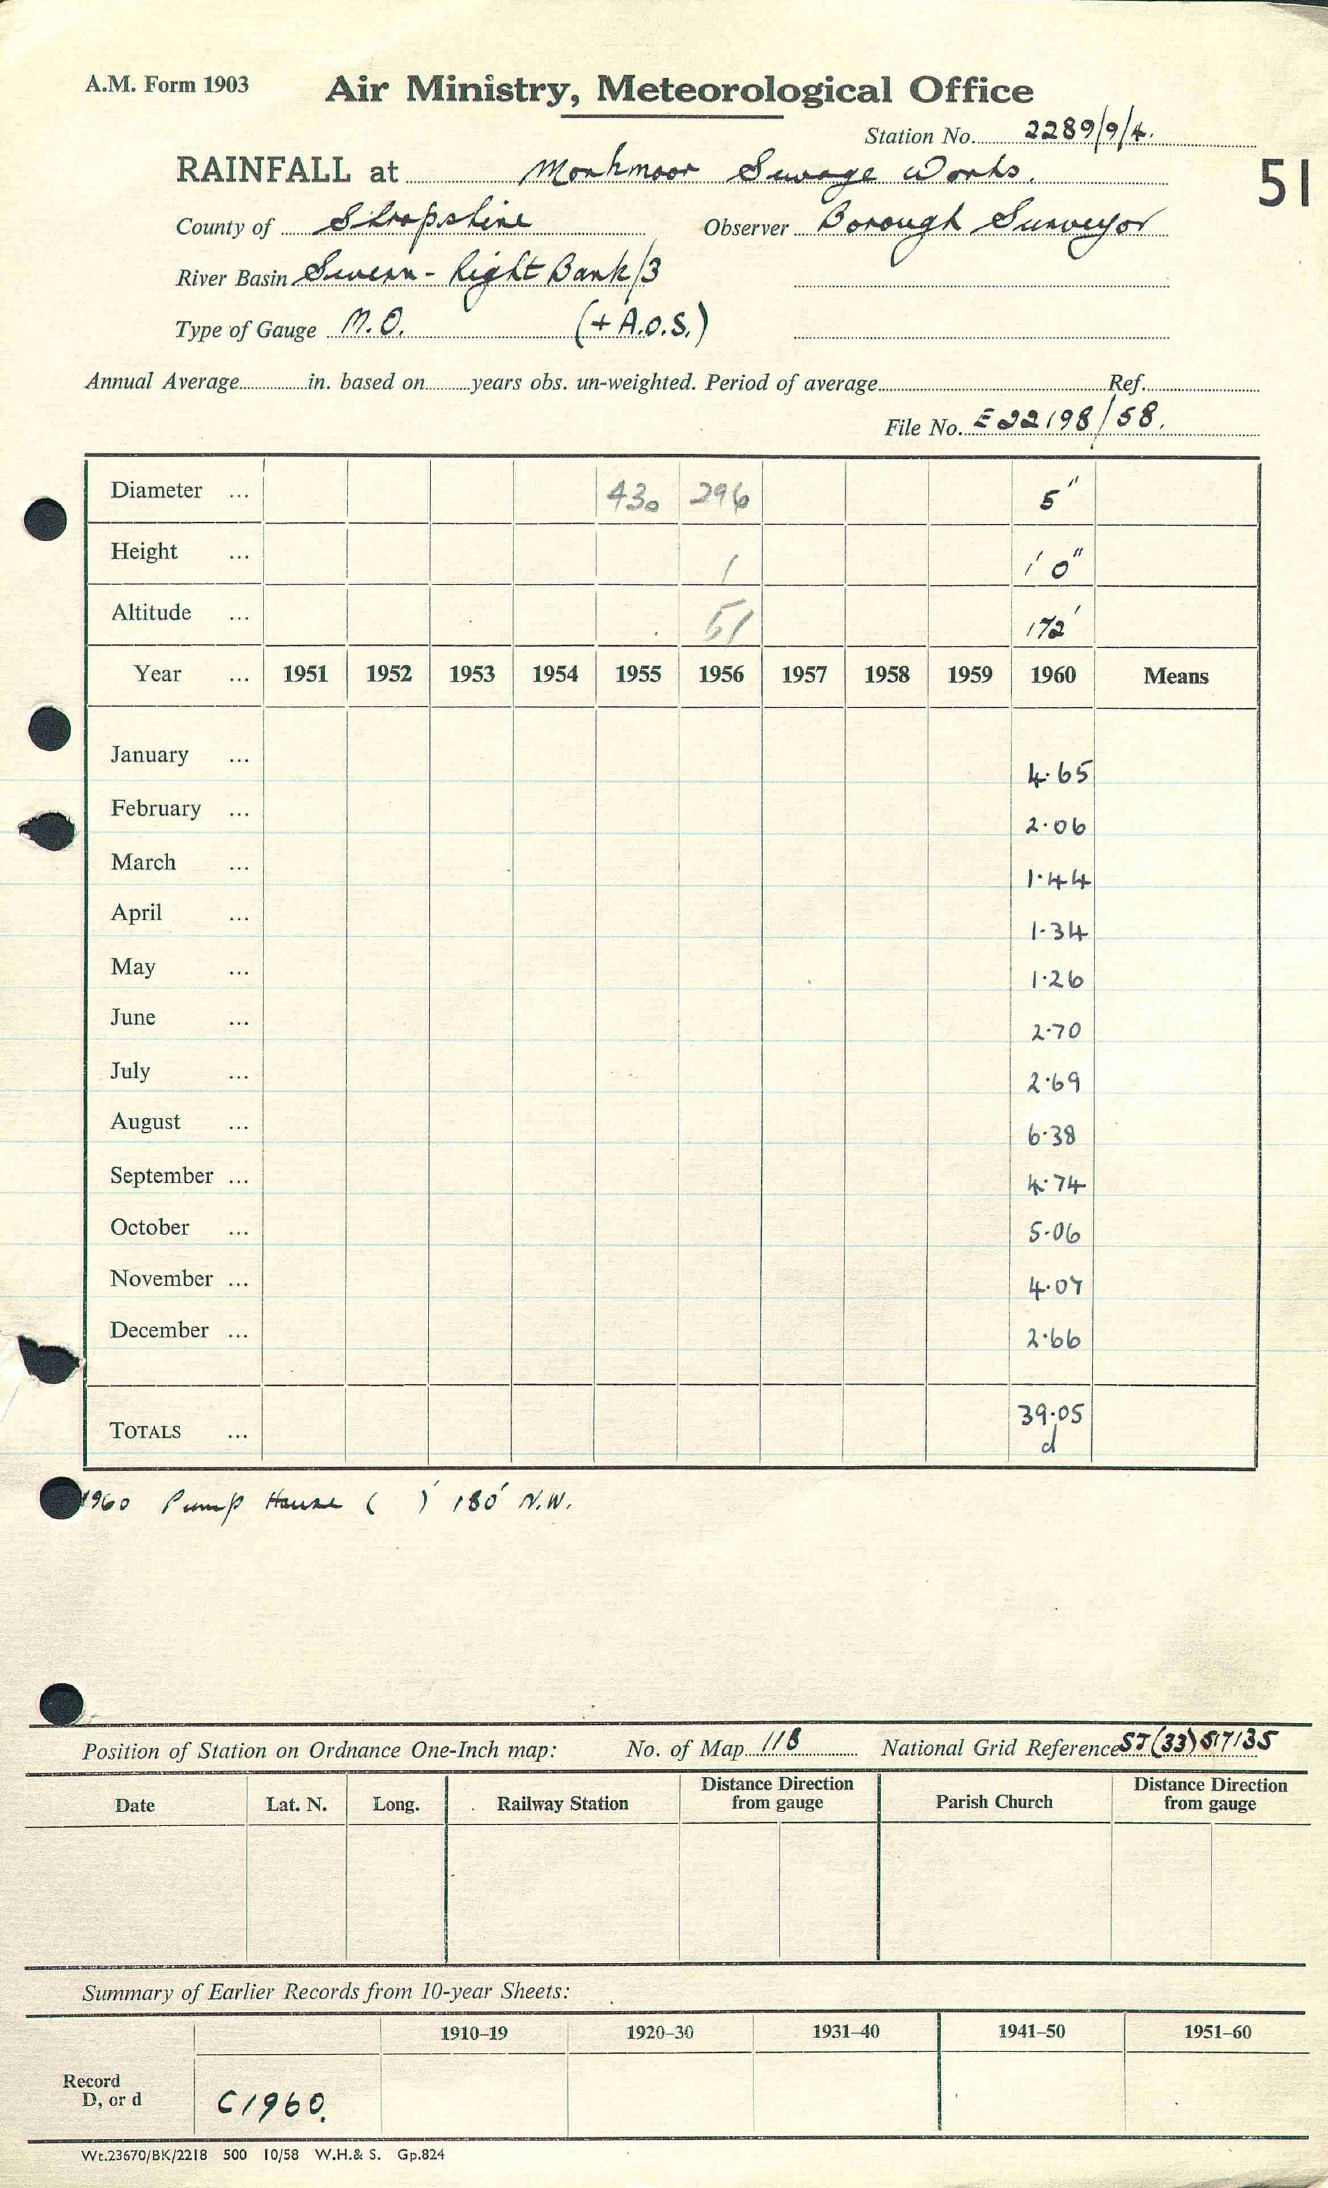 A.M. Form 1903 Air Ministry, Meteorological Office
Station No. 2289/9/4.
RAINFALL at Monkmoor Sewage Works. 51
County of Shropshire Observer Borough Surveyor
River Basin Severn - Right Bank/3
Type of Gauge M.O. (+ A.O.S.)
Annual Average in. based on years obs. un-weighted. Period of average Ref.
File No. E22198/58.
Diameter ... 430 296 5"
Height ... 1 1' 0"
Altitude ... 51 172'
Year ... 1951 1952 1953 1954 1955 1956 1957 1958 1959 1960 Means
January ... 4.65
February ... 2.06
March ... 1.44
April ... 1.34
May ... 1.26
June ... 2.70
July ... 2.69
August ... 6.38
September ... 4.74
October ... 5.06
November ... 4.07
December ... 2.66
TOTALS ... 39.05
d
1960 Pump House ( )' 180' N.W.
Position of Station on Ordnance One-Inch map: No. of Map 118 National Grid Reference SJ(33)517135
Date Lat. N. Long. Railway Station Distance Direction from gauge Parish Church Distance Direction from gauge
Summary of Earlier Records from 10-year Sheets:
1910–19 1920–30 1931–40 1941–50 1951–60
Record
D, or d C1960.
Wt.23670/BK/2218 500 10/58 W.H.& S. Gp.824